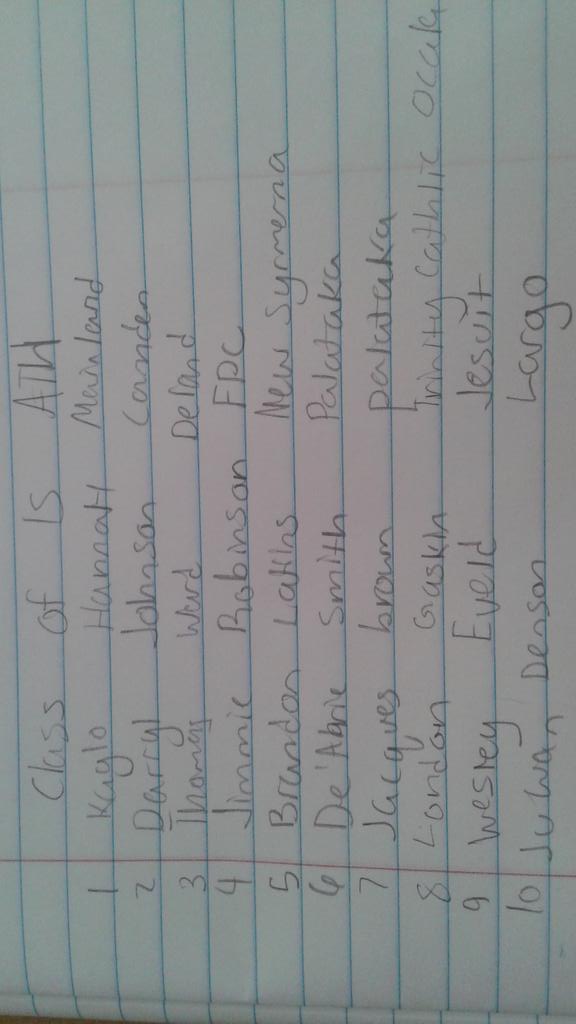 Class of 15 ATH
1 Kaylo Hannah Mainland
2 Darryl Johnson Camden
3 Thomas Ward Deland
4 Jimmie Robinson FPC
5 Brandon Lakins New Symerna
6 De'Abrie Smith Palataka
7 Jacques brown palataka
8 London Gaskin Trinity Cathlic Ocala
9 Wesley Eveld Jesuit
10 Juwan Denson Largo